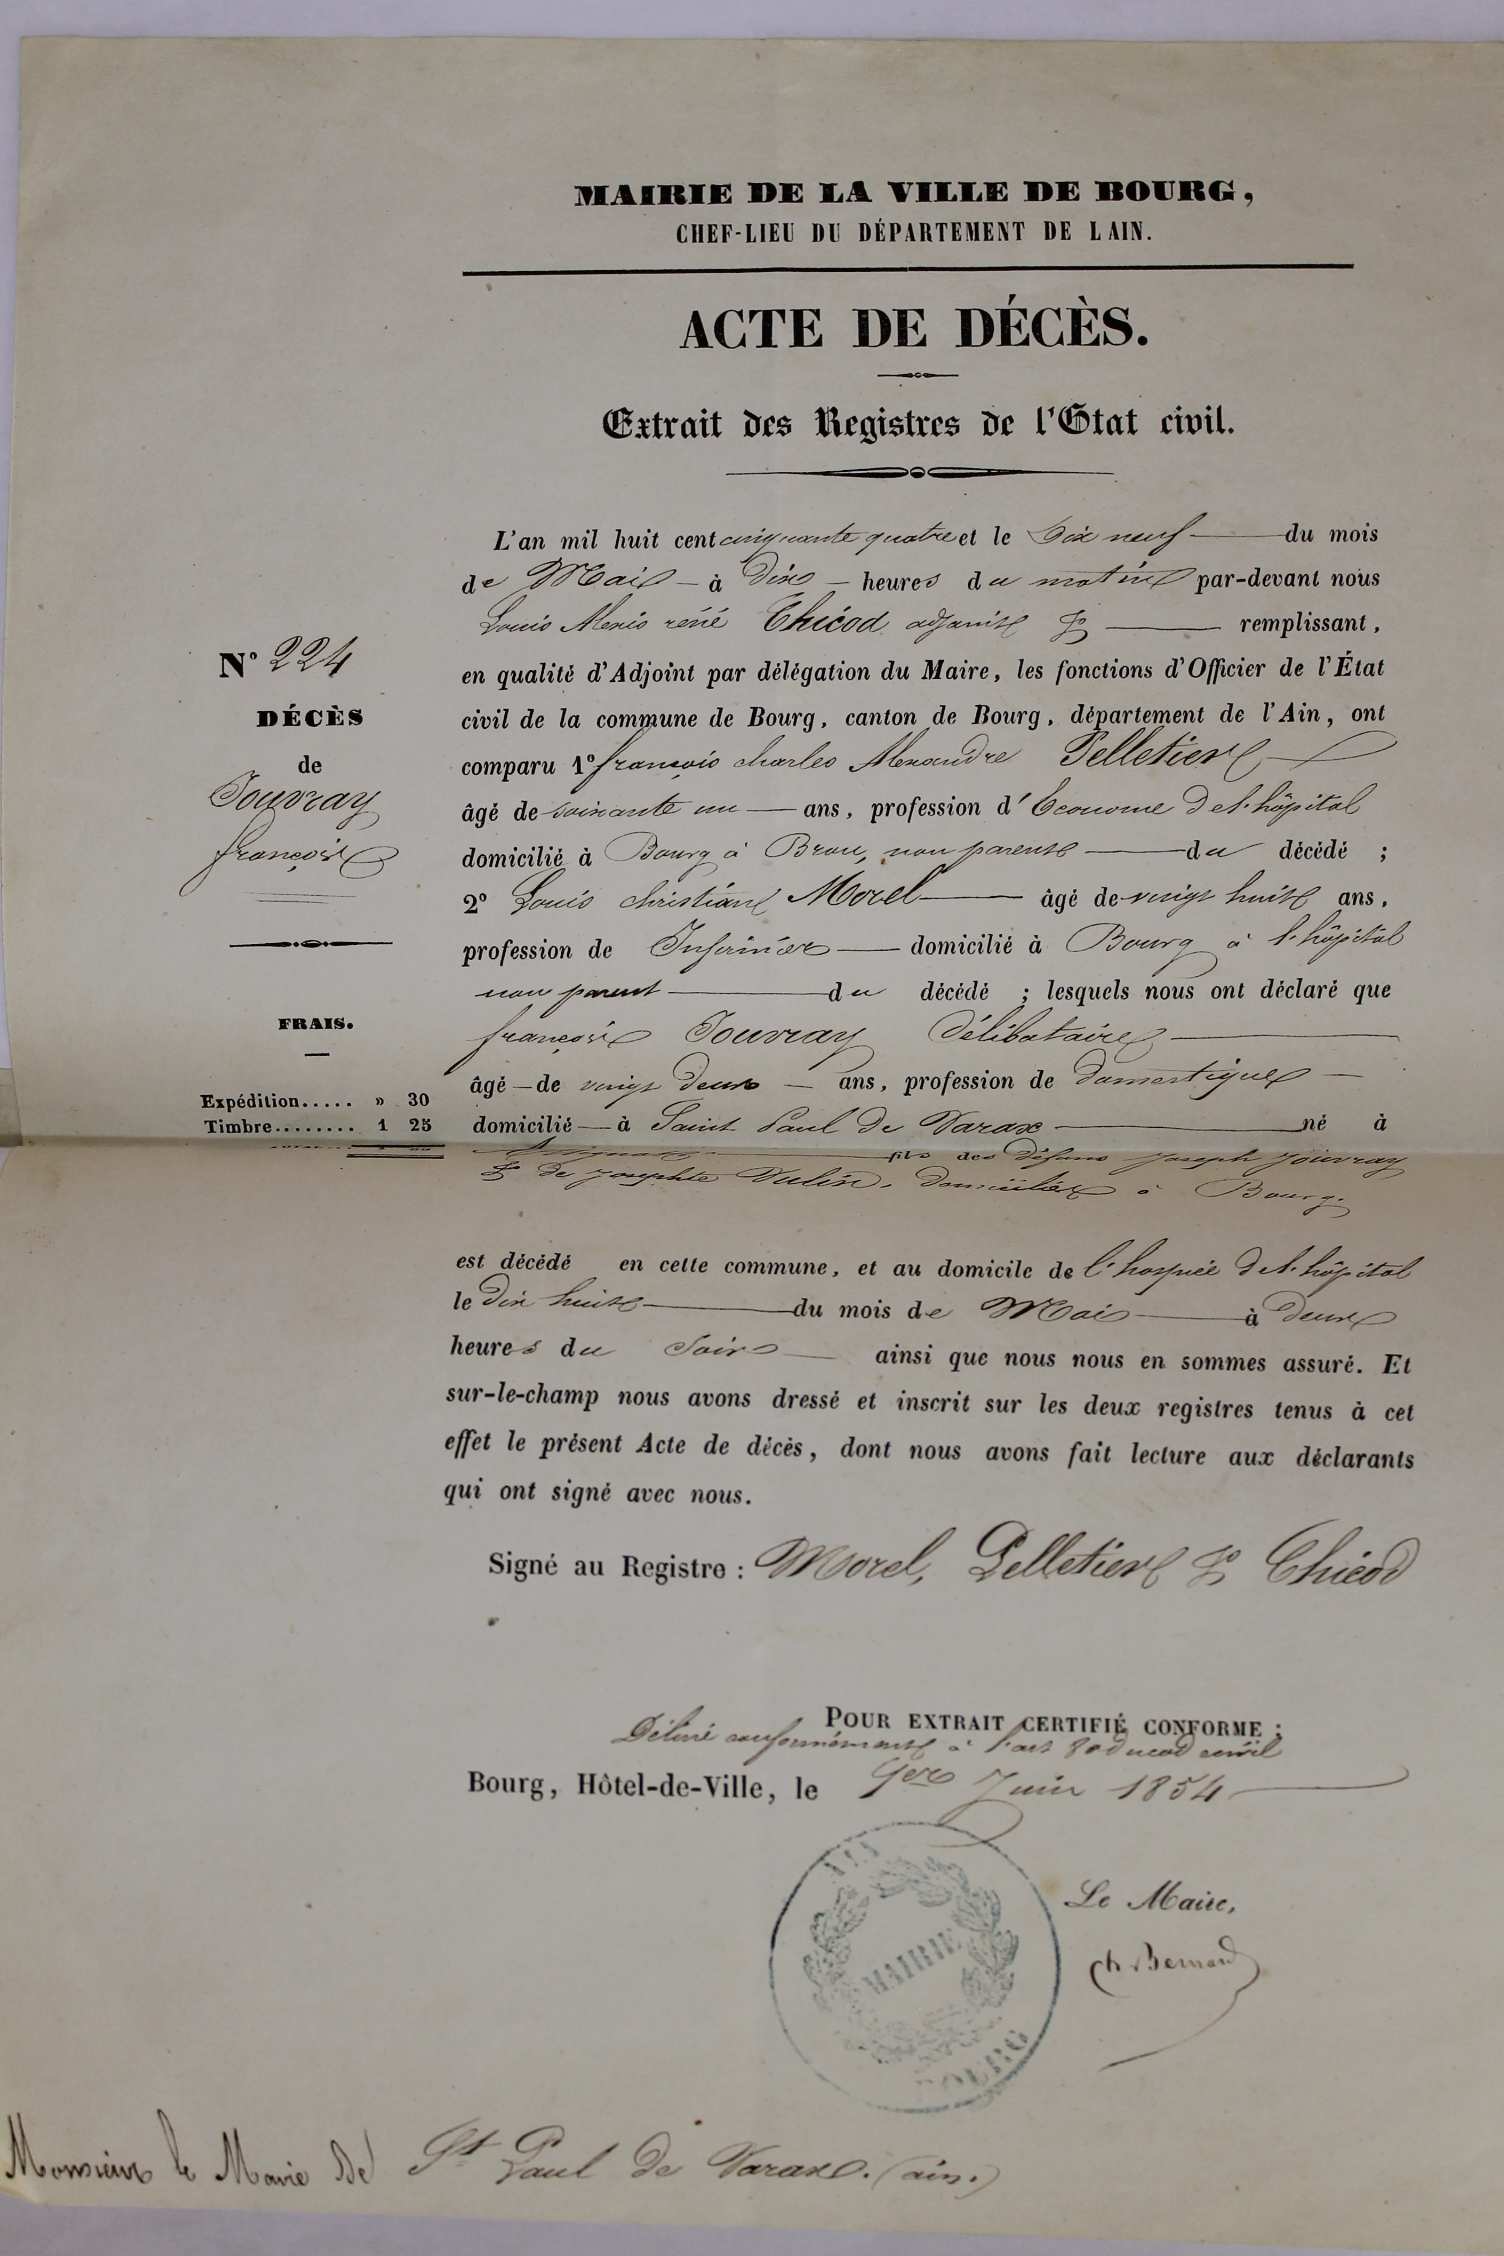 MAIRIE DE LA VILLE DE BOURG,
CHEF-LIEU DU DÉPARTEMENT DE L AIN.
ACTE DE DÉCÈS.
Extrait des Registres de l'Etat civil.
L'an mil huit cent cinquante quatre et le dix neuf du mois
de Mai à dix heures du matin par-devant nous
Louis Alexis réné Chicod adjoint & remplissant,
en qualité d'Adjoint par délégation du Maire, les fonctions d'Officier de l'État
civil de la commune de Bourg, canton de Bourg, département de l'Ain, ont
comparu 1º françois charles Alexandre Pelletier
âgé de soixante un ans, profession d'Econome de l'hôpital
domicilié à Bourg à Brou, non parent du décédé ;
2º Louis christian Morel âgé de vingt huit ans,
profession de Infirmier domicilié à Bourg à l'hôpital
non parent du décédé ; lesquels nous ont déclaré que
françois Jouvray Célibataire
âgé de vingt deux ans, profession de domestique
domicilié à Saint Paul de Varax né à
fils des défunts Joseph Jouvray
& de Josephte Vulin, domiciliés à Bourg.
est décédé en cette commune, et au domicile de l'hospice de l'hôpital
le dix huit du mois de Mai à deux
heures du soir ainsi que nous nous en sommes assuré. Et
sur-le-champ nous avons dressé et inscrit sur les deux registres tenus à cet
effet le présent Acte de décès, dont nous avons fait lecture aux déclarants
qui ont signé avec nous.
Signé au Registre : Morel, Pelletier & Chicod
Nº 224
DÉCÈS
de
Jouvray
françois
FRAIS.
Expédition..... » 30
Timbre........ 1 25
POUR EXTRAIT CERTIFIÉ CONFORME :
Délivré conformément à l'art 80 du cod civil
Bourg, Hôtel-de-Ville, le 1er Juin 1854
AIN
MAIRIE
BOURG
Le Maire,
Ch Bernard
Monsieur le Maire de St Paul de Varax. (ain.)